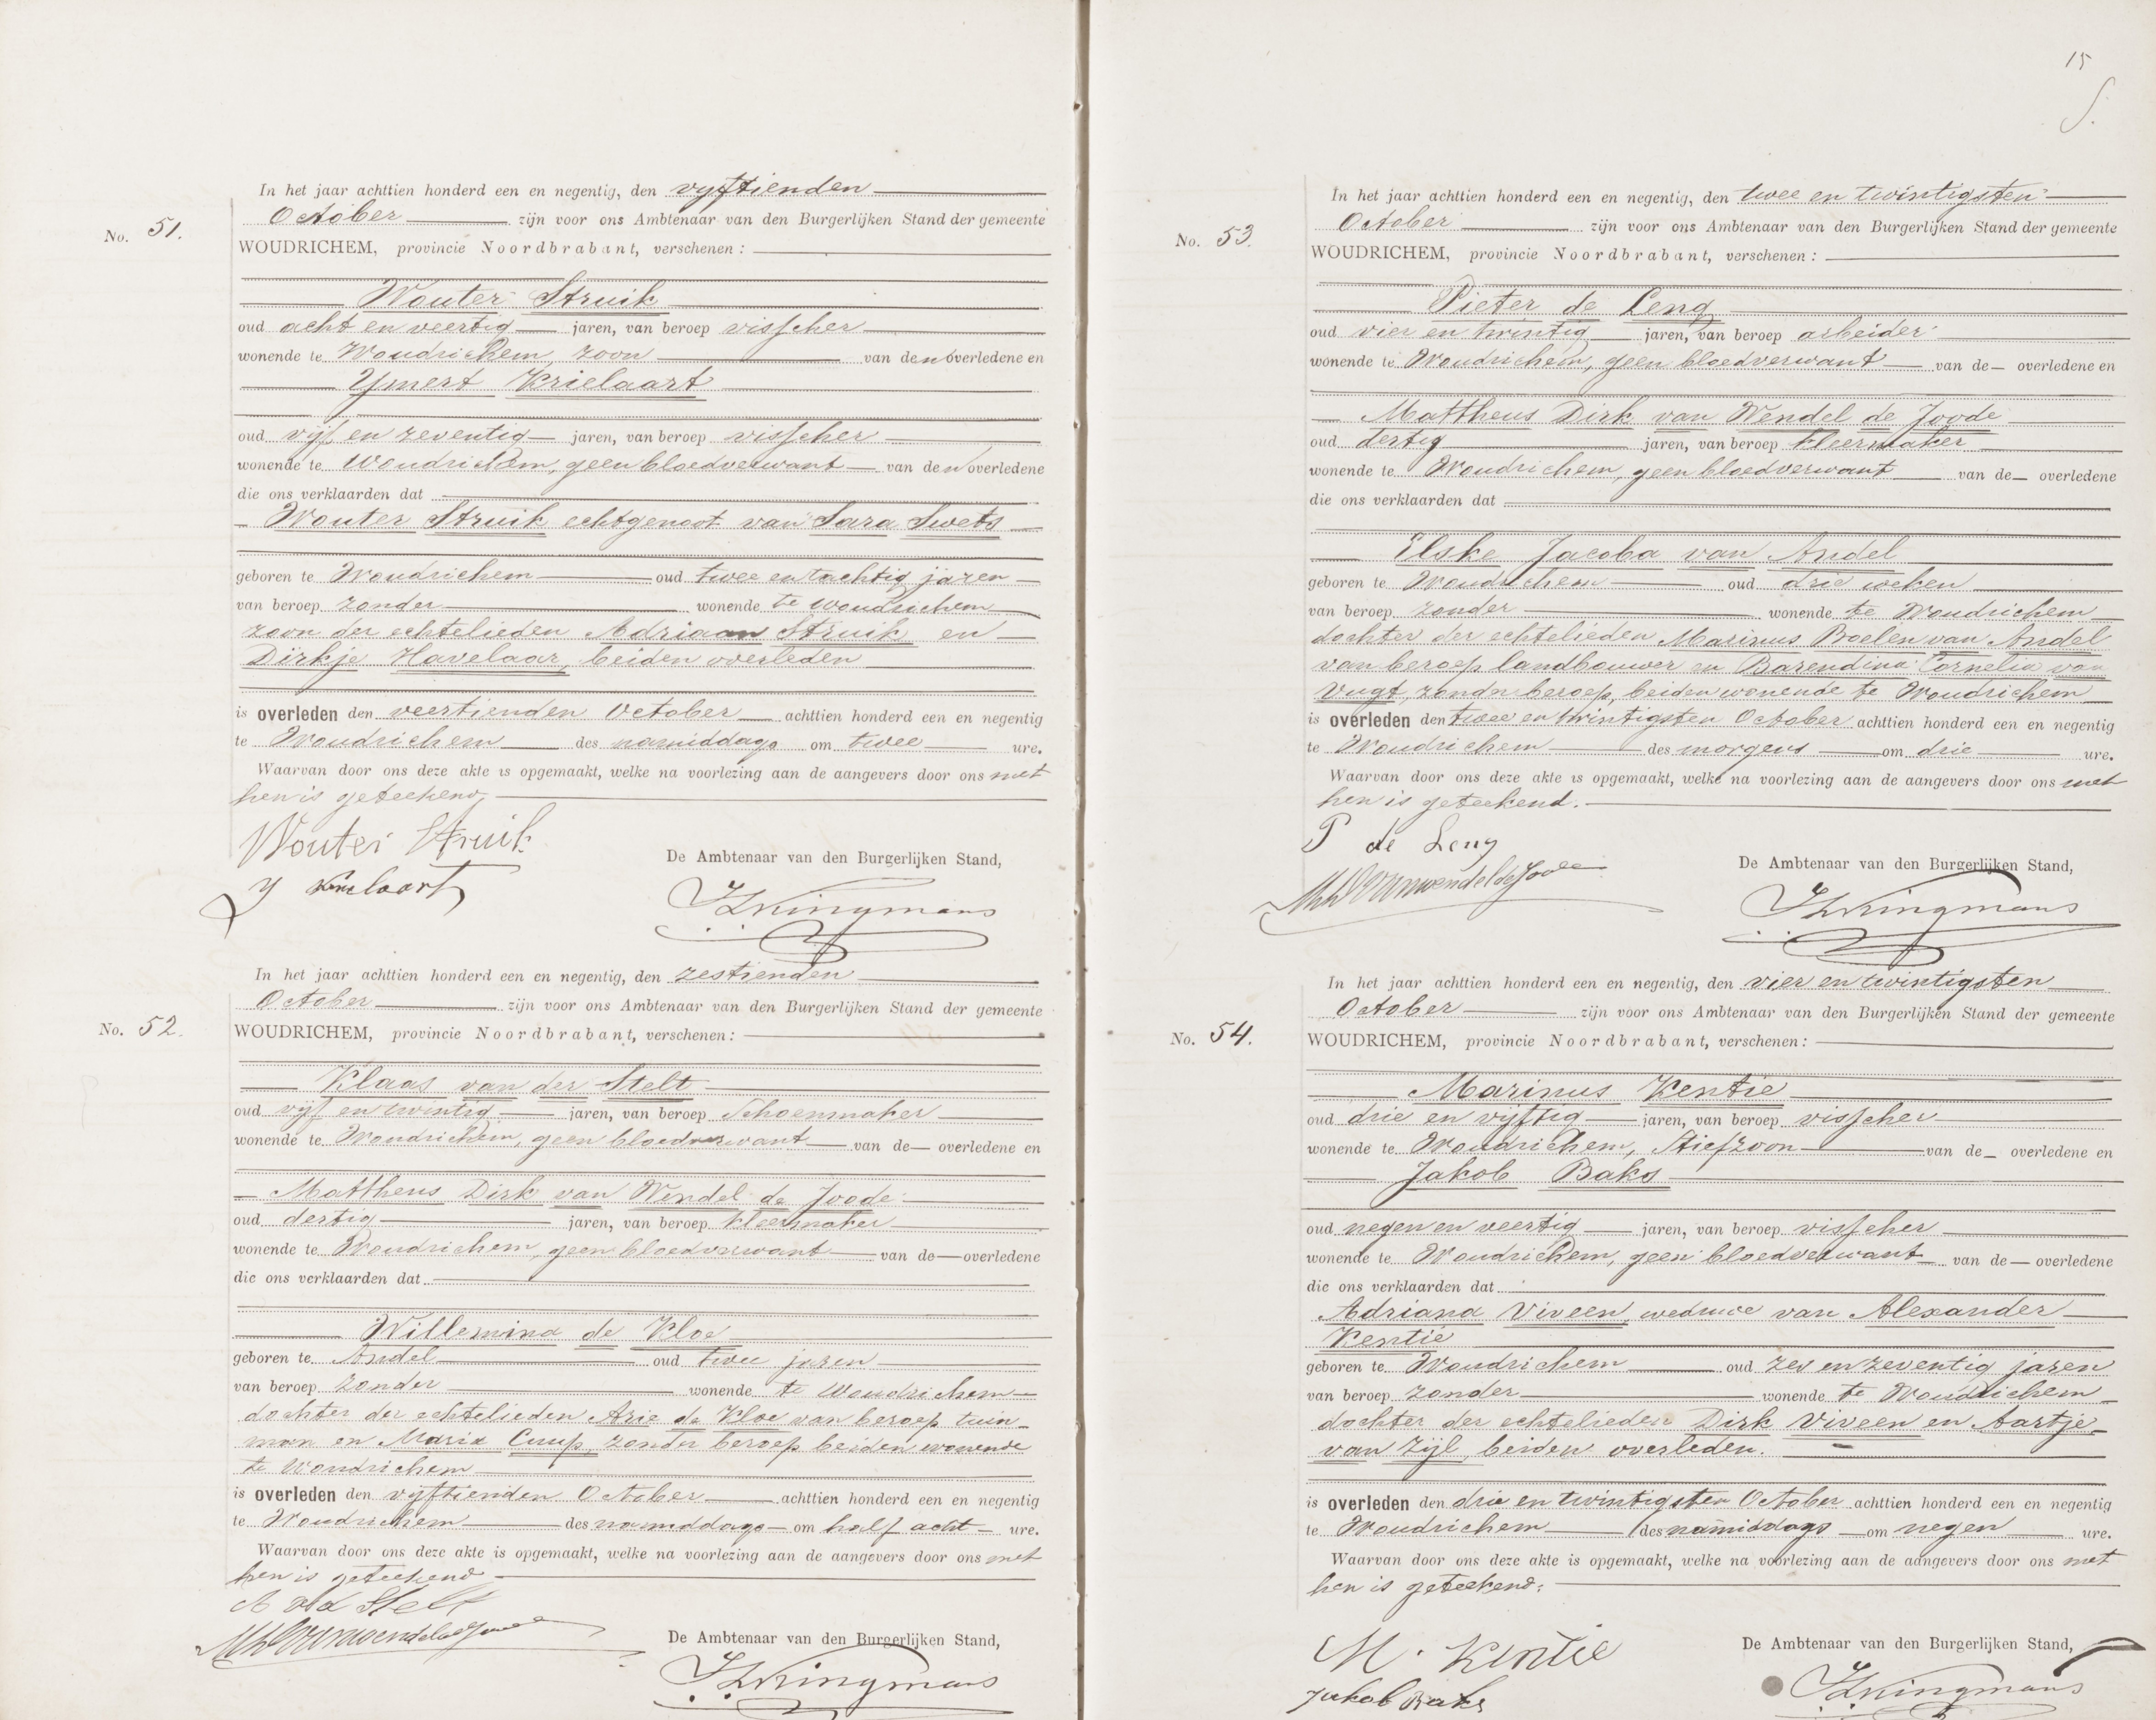 In het jaar achttien honderd een en negentig, den vyftienden
October zijn voor ons Ambtenaar van den Burgerlijken Stand der gemeente
No. 51.
WOUDRICHEM, provincie Noordbrabant, verschenen:
Wouter Struik
oud acht en veertig jaren, van beroep visscher
wonende te Woudrichem, zoon van den overledene en
Ymert Krielaart
oud vijf en zeventig jaren, van beroep visscher
wonende te Woudrichem, geen bloedverwant van den overledene
die ons verklaarden dat
Wouter Struik echtgenoot van Sara Swets
geboren te Woudrichem oud twee en tachtig jaren
van beroep zonder wonende te Woudrichem
zoon der echtelieden Adriaan Struik en
Dirkje Havelaar, beiden overleden
is overleden den veertienden October achttien honderd een en negentig
te Woudrichem des namiddags om twee ure.
Waarvan door ons deze akte is opgemaakt, welke na voorlezing aan de aangevers door ons met
hen is geteekend,
Wouter Struik
De Ambtenaar van den Burgerlijken Stand,
Y Krielaart
Kringmans
In het jaar achttien honderd een en negentig, den zestienden
October zijn voor ons Ambtenaar van den Burgerlijken Stand der gemeente
No. 52.
WOUDRICHEM, provincie Noordbrabant, verschenen:
Klaas van der Stelt
oud vijf en twintig jaren, van beroep Schoenmaker
wonende te Woudrichem, geen bloedverwant van de overledene en
Mattheus Dirk van Wendel de Joode
oud dertig jaren, van beroep kleermaker
wonende te Woudrichem, geen bloedverwant van de overledene
die ons verklaarden dat
Willemina de Kloe
geboren te Andel oud twee jaren
van beroep zonder wonende te Woudrichem
dochter der echtelieden Arie de Kloe van beroep tuin-
man en Maria Cuup, zonder beroep beiden wonende
te Woudrichem
is overleden den vyftienden October achttien honderd een en negentig
te Woudrichem des namiddags om half acht ure.
Waarvan door ons deze akte is opgemaakt, welke na voorlezing aan de aangevers door ons met
hen is geteekend
vd Stelt
De Ambtenaar van den Burgerlijken Stand,
Kringmans
15
In het jaar achttien honderd een en negentig, den twee en twintigsten
October zijn voor ons Ambtenaar van den Burgerlijken Stand der gemeente
No. 53.
WOUDRICHEM, provincie Noordbrabant, verschenen:
Pieter de Leng
oud vier en twintig jaren, van beroep arbeider
wonende te Woudrichem, geen bloedverwant van de overledene en
Mattheus Dirk van Wendel de Joode
oud dertig jaren, van beroep kleermaker
wonende te Woudrichem, geen bloedverwant van de overledene
die ons verklaarden dat
Elske Jacoba van Andel
geboren te Woudrichem oud drie weken
van beroep zonder wonende te Woudrichem
dochter der echtelieden Marinus Roelen van Andel
van beroep landbouwer en Barendina Cornelia van
Vugt, zonder beroep, beiden wonende te Woudrichem
is overleden den twee en twintigsten October achttien honderd een en negentig
te Woudrichem des morgens om drie ure.
Waarvan door ons deze akte is opgemaakt, welke na voorlezing aan de aangevers door ons met
hen is geteekend.
P de Leng
De Ambtenaar van den Burgerlijken Stand,
Kringmans
In het jaar achttien honderd een en negentig, den vier en twintigsten
October zijn voor ons Ambtenaar van den Burgerlijken Stand der gemeente
No. 54.
WOUDRICHEM, provincie Noordbrabant, verschenen:
Marinus Kentie
oud drie en vyftig jaren, van beroep visscher
wonende te Woudrichem, Stiefzoon van de overledene en
Jakob Baks
oud negen en veertig jaren, van beroep visscher
wonende te Woudrichem, geen bloedverwant van de overledene
die ons verklaarden dat
Adriana Viveen weduwe van Alexander
Kentie
geboren te Woudrichem oud zes en zeventig jaren
van beroep zonder wonende te Woudrichem
dochter der echtelieden Dirk Viveen en Aartje
van Zijl, beiden overleden.
is overleden den drie en twintigsten October achttien honderd een en negentig
te Woudrichem des namiddags om negen ure.
Waarvan door ons deze akte is opgemaakt, welke na voorlezing aan de aangevers door ons met
hen is geteekend.
M. Kentie
De Ambtenaar van den Burgerlijken Stand,
Jakob Baks
Kringmans